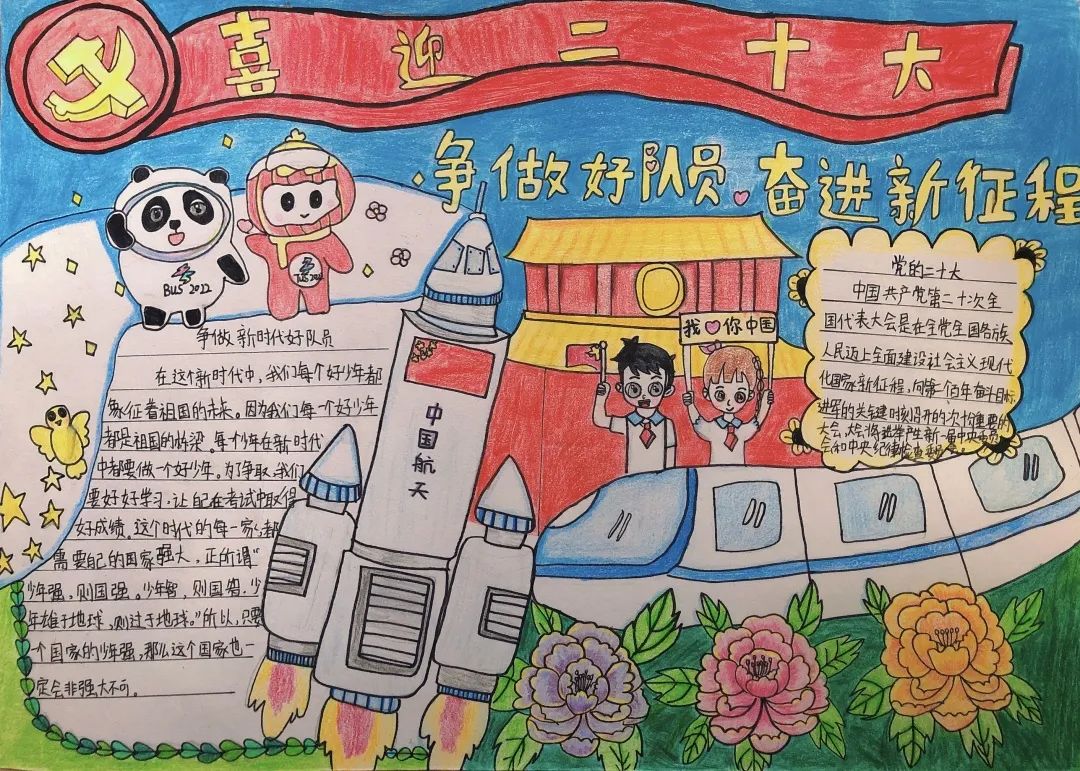 喜迎二十大
争做好队员 奋进新征程
BUS 2022
争做新时代好队员
在这个新时代中，我们每个好少年都
象征着祖国的未来。因为我们每一个好少年
都是祖国的栋梁。每个少年在新时代
中都要做一个好少年。为争取，我们
要好好学习，让自己在考试中取得
好成绩。这个时代的每一家，都
需要自己的国家强大，正所谓“
少年强，则国强。少年智，则国智，少
年雄于地球，则过于地球。”所以，只要
一个国家的少年强，那么这个国家也一
定会非强大不可。
中国航天
我你中国
党的二十大
中国共产党第二十次全
国代表大会是在全党全国各族
人民迈上全面建设社会主义现代
化国家新征程，向第个百年奋斗目标
进军的关键时刻召开的个十分重要的
大会，大会将选举产生新一届中央委员
会和中央纪律检查委员会。